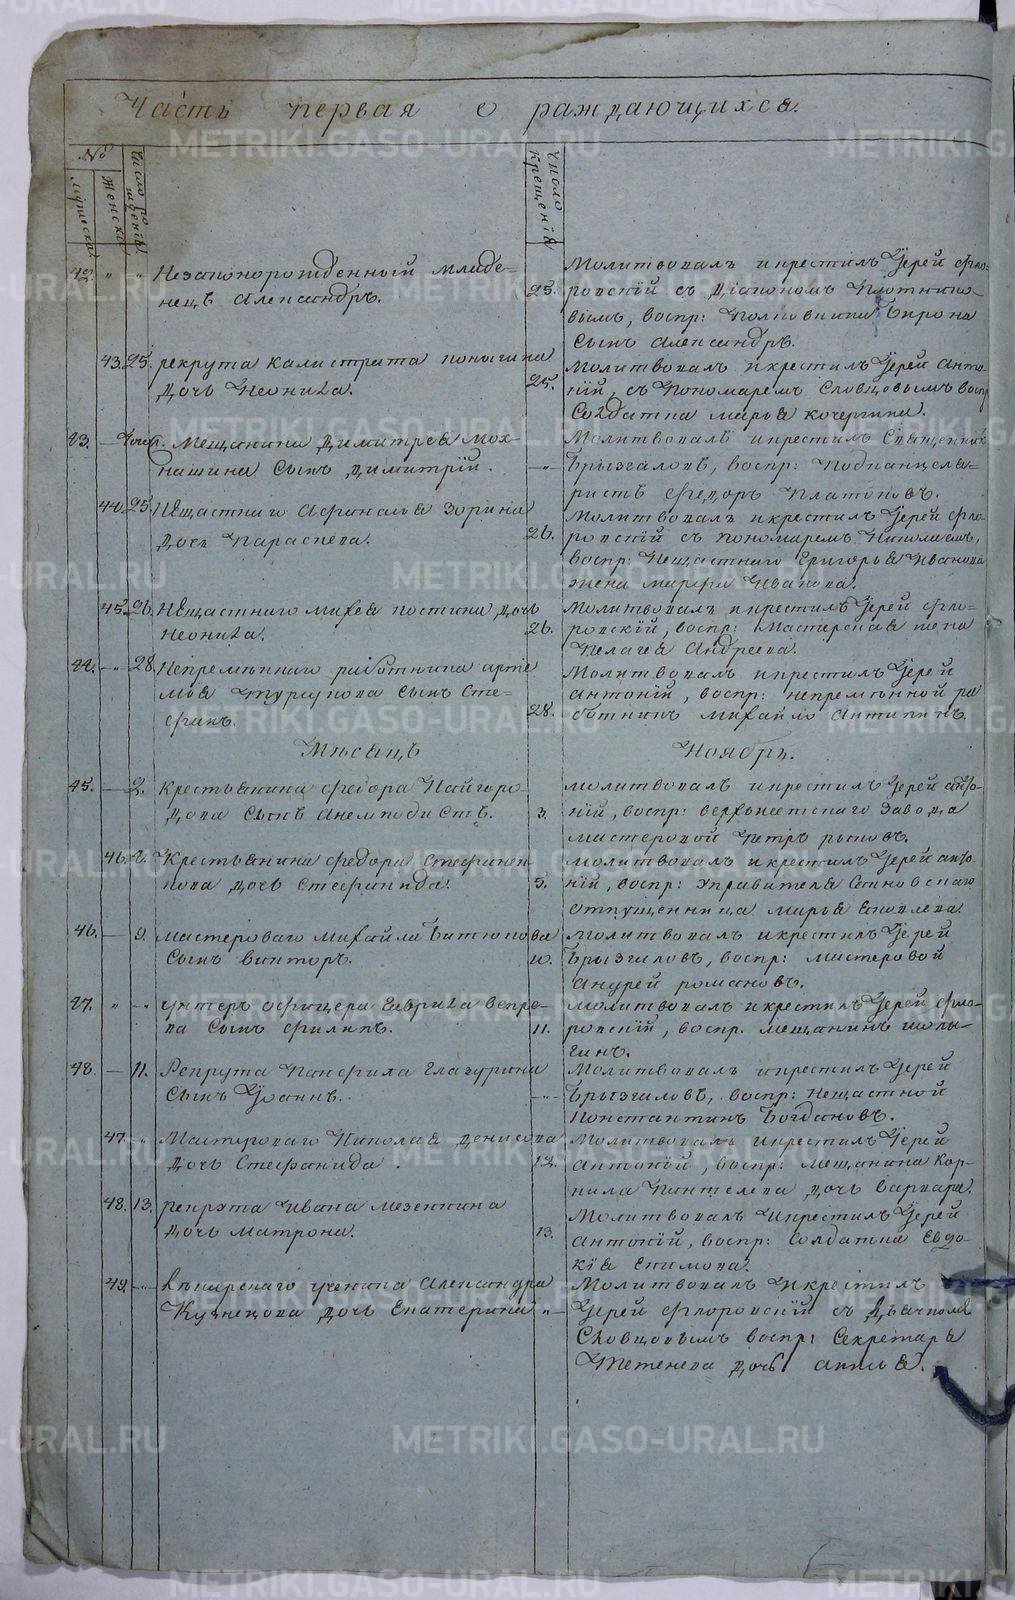 Часть первая о раждающихся.
№
мужеска
женска
Число рождения
Число крещения
42. " " Незаконорожденный младе-
нецъ Александръ.
25.
Молитвовалъ и крестилъ Іерей Фло-
ровскій съ Діакономъ Плотнико-
вымъ, воспр: Полковника
Сынъ Александръ.
43. 25. рекрута Калистрата
дочь Неонила.
25.
Молитвовалъ и крестилъ Іерей Анто-
ній, съ Пономаремъ Словцовымъ воспр
Солдатка Марья Кочергина.
43. — Мещанина Димитрея Мох-
начина Сынъ Димитрій.
—"—
Молитвовалъ и крестилъ Священникъ
Брызгаловъ, воспр: Подканцеля-
ристъ Федоръ Платоновъ.
44. 25. Нещастнаго Афанасья Зорина
дочь Параскева.
26.
Молитвовалъ и крестилъ Іерей Фло-
ровскій съ пономаремъ Николаемъ,
воспр: Нещастнаго Григорья Иванова
жена Марфа Иванова.
45. 26. Нещастнаго Михея Костина дочь
Неонила.
26.
Молитвовалъ и крестилъ Іерей Фло-
ровскій, воспр: Мастерская жена
Пелагея Андреева.
44. —"— 28. Непременнаго работника Арте
мья Туркунова сынъ Сте-
фанъ.
28.
Молитвовалъ и крестилъ Іерей
Антоній, воспр: непременной ра
ботникъ Михайло Антипинъ
Месяцъ Ноябрь.
45. — 2. Крестьянина Федора Кайгоро
дова Сынъ Анемподистъ.
3.
молитвовалъ и крестилъ Іерей Анто-
ній, воспр: Верхъисетскаго Завода
мастеровой Петръ рыковъ.
46. 2. Крестьянина Федора Стефанен-
кова дочь Стефанида.
5.
молитвовалъ и крестилъ Іерей Анто
ній, воспр: Управителя
отпущенница Марья Яковлева.
46. — 9. мастероваго Михайла Битюкова
Сынъ Викторъ.
10.
Молитвовалъ и крестилъ Іерей
Брызгаловъ, воспр: мастеровой
Андрей романовъ.
47. " —"— унтеръ офицера Гаврила Вепре-
ва Сынъ Филипъ.
11.
Молитвовалъ и крестилъ Іерей Фло-
ровскій, воспр. мещанинъ
48. — 11. Рекрута Панфила Глазурина
Сынъ Іоаннъ.
—"—
Молитвовалъ и крестилъ Іерей
Брызгаловъ, воспр: Нещастной
Константинъ Богдановъ.
47. " Мастероваго Николая Денисова
дочь Стефанида.
12.
Молитвовалъ и крестилъ Іерей
Антоній, воспр: Мещанина Кор-
нила Пантелеева дочь Варвара.
48. 13. рекрута Ивана Мезенкина
дочь Матрона.
13.
Молитвовалъ и крестилъ Іерей
Антоній, воспр: Солдатка Евдо-
кія Екимова.
49. —"— Лекарскаго ученика Александра
Кузнецова дочь Екатерина
"
Молитвовалъ и крестилъ
Іерей Флоровскій съ Дьячкомъ
Словцовымъ воспр: Секретаря
Тетенева дочь
METRIKI.GASO-URAL.RU